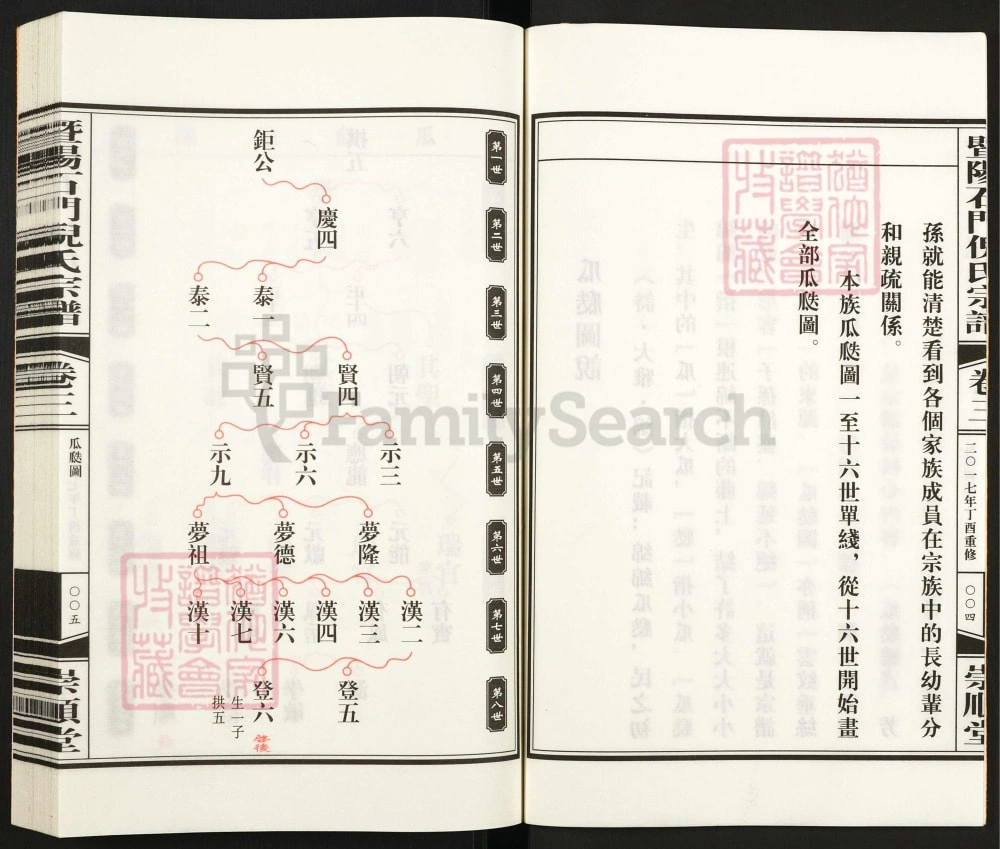 孫就能清楚看到各個家族成員在宗族中的長幼輩分
和親疏關係。
本族瓜瓞圖一至十六世單綫，從十六世開始畫
全部瓜瓞圖。
暨陽石門倪氏宗譜
卷三
二〇一七年丁酉重修
〇〇四
崇順堂
第一世
鉅公
第二世
慶四
第三世
泰一
泰二
第四世
賢四
賢五
第五世
示三
示六
示九
第六世
夢隆
夢德
夢祖
第七世
漢二
漢三
漢四
漢六
漢七
漢十
第八世
登五
登六
啓後
生一子
拱五
暨陽石門倪氏宗譜
卷三
瓜瓞圖
〇〇五
崇順堂
FamilySearch